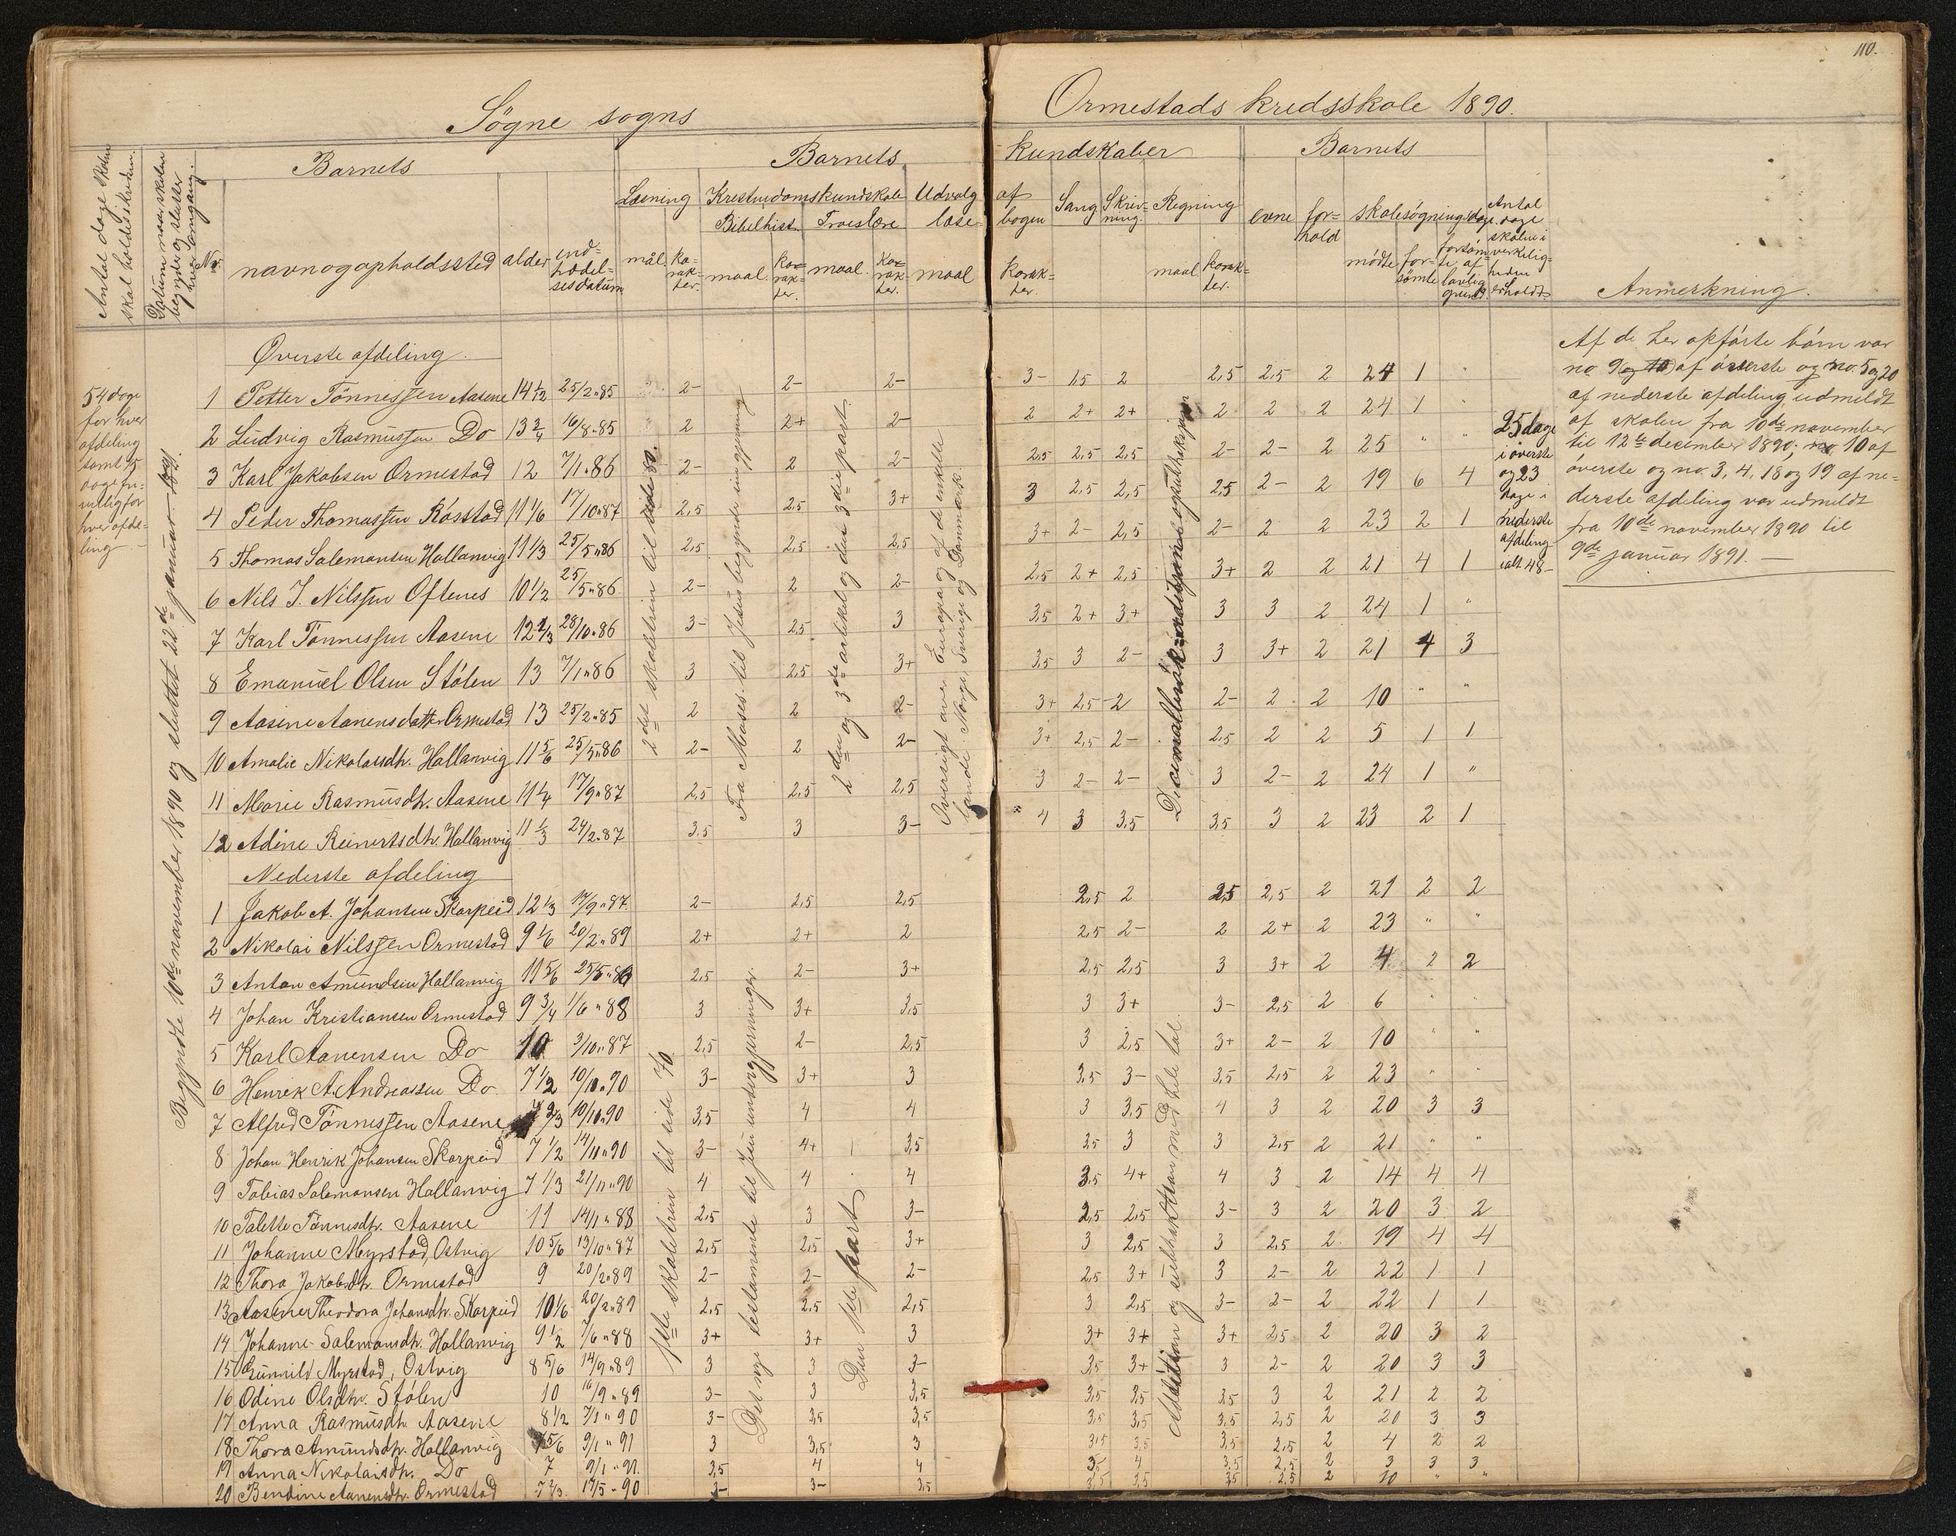 110.
Søgne sogns
Ormestads kredsskole 1890.
Antal dage skolen skal holdes i kredsen.
Datum naar skolen begynder og slutter hver omgang.
No.
Barnets
navn og opholdssted
alder
ind-trædel-sesdatum
Barnets
kundskaber
Barnets
Læsning
Kristendomskundskab
Bibelhist.
Troeslære
Udvalg af læse-bogen
Sang
Skriv-ning.
Regning
evne
for-hold
skolesøgning dage
mødte
for-sømte
forsøm-te af lovlig grund.
Antal dage skolen i virkelig-heden erholdt
Anmerkning.
54 dage
for hver
afdeling
samt 5
dage fri-
villig for
hver afde-
ling
Begyndte 10de november 1890 og sluttet 22de januar 1891.
Øverste afdeling.
1 Petter Tønnessen Aasene 14 1/2 25/2 "85 2- 2- 2- 3- 1,5 2 2,5 2,5 2 24 1 "
2 Ludvig Rasmussen Do 13 3/4 16/8 "85 2 2+ 2- 2 2+ 2+ 2 2 2 24 1 "
3 Karl Jakobsen Ormestad 12 7/1 "86 2- 2 2- 2,5 2,5 2,5 2- 2- 2 25 " "
4 Peder Thomassen Røsstad 11 1/6 17/10 "87 2,5 2,5 3+ 3 2,5 2,5 2,5 2- 2 19 6 4
5 Thomas Salemonsen Hallanvig 11 1/3 25/5 "86 2,5 2,5 2,5 3+ 2- 2,5 2- 2 2 23 2 1
6 Nils J. Nilssen Oftenes 10 1/2 25/5 "86 2- 2 2- 2,5 2+ 2,5 3+ 2 2 21 4 1
7 Karl Tønnessen Aasene 12 2/3 28/10 "86 3- 2,5 3 3,5 2+ 3+ 3 3 2 24 1 "
8 Emanuel Olsen Stølen 13 7/1 "86 3 2,5 3+ 3,5 3 2- 3 3+ 2 21 4 3
9 Aasine Aanensdatter Ormestad 13 25/2 "85 2 2 2- 3+ 2,5 2 2- 2 2 10 " "
10 Amalie Nikolaisdtr. Hallanvig 11 5/6 25/5 "86 2- 2 2- 3+ 2,5 2- 2,5 2 2 5 1 1
11 Marie Rasmusdtr. Aasene 11 1/4 17/9 "87 2,5 2,5 2,5 3 2- 2- 3 2- 2 24 1 "
12 Adine Reinertsdtr. Hallanvig 11 1/3 24/2 "87 3,5 3 3- 4 3 3,5 3,5 3 2 23 2 1
2det skoletrin til side 80.
Fra Moses til Jesus begynder ingjerning
2den og 3die artikel og den 3die part.
Oversigt over Europa og af de enkelte
lande Norge, Sverige og Danmark.
25 dage
i øverste
og 23
dage i
nederste
afdeling
ialt 48-
Af de her opførte børn var
no. 9 og 10 af øverste og no. 5 og 20
af nederste afdeling udmeldt
af skolen fra 10de november
til 12te december 1890; no 10 af
øverste og no. 3, 4, 18 og 19 af ne-
derste afdeling var udmeldt
fra 10de november 1890 til
9de januar 1891. —
Nederste afdeling
1 Jakob A. Johansen Skarpeid 12 1/3 17/9 "87 2- 2,5 2,5 2,5 2 2,5 2,5 2 21 2 2
2 Nikolai Nilssen Ormestad 9 1/6 20/2 "89 2+ 2+ 2 2,5 2- 2 2+ 2 23 " "
3 Anton Amundsen Hallanvig 11 5/6 25/5 "86 2,5 2- 3+ 2,5 2,5 3 3+ 2 4 2 2
4 Johan Kristiansen Ormestad 9 3/4 1/6 "88 3 3+ 3,5 3 3+ 3- 2,5 2 6 " "
5 Karl Aanensen Do 10 3/10 "87 2,5 2- 2,5 3 2,5 3+ 2- 2 10 " "
6 Henrik A. Andreassen Do. 7 1/2 10/11 "90 3- 3+ 3 3,5 3- 3,5 2,5 2 23 " "
7 Alfred Tønnessen Aasene 2/3 10/11 "90 3,5 4 4 3 3,5 4 3 2 20 3 3
8 Johan Henrik Johansen Skarpeid 7 1/2 14/11 "90 3- 4+ 3,5 3,5 3 3 2,5 2 21 " "
9 Tobias Salemonsen Hallanvig 7 1/3 21/11 "90 4 4 4 3,5 4+ 4 3 2 14 4 4
10 Talette Tønnesdtr. Aasene 11 14/1 "88 2,5 3 3- 2,5 2,5 3- 3 2 20 3 2
11 Johanne Myrstad, Ostvig 10 5/6 13/10 "87 2,5 2,5 3+ 3 2,5 3 2,5 2 19 4 4
12 Thora Jakobsdtr. Ormestad 9 20/2 "89 2- 2- 2- 2,5 3+ 3 2- 2 22 1 1
13 Aasine Theodora Johansdtr. Skarpeid 10 1/6 20/2 "89 2,5 2,5 2,5 3 2,5 3- 2- 2 22 1 1
14 Johanne Salemonsdtr. Hallanvig 9 1/2 7/6 "88 3+ 3+ 3 3+ 3+ 3+ 2,5 2 20 3 2
15 Gunnild Myrstad, Ostvig 8 5/6 14/9 "89 3 3 3- 3,5 3+ 3 2- 2 20 3 3
16 Odine Olsdtr. Stølen 10 16/9 "89 3- 3 3,5 3,5 3,5 3,5 3 2 21 2 2
17 Anna Rasmusdtr. Aasene 8 1/2 7/1 "90 3- 3,5 3,5 3,5 3,5 3,5 2,5 2 20 3 3
18 Thora Amundsdtr. Hallanvig 5/6 9/1 "91 3 3,5 3 3,5 3,5 3,5 2,5 2 4 2 2
19 Anna Nikolaisdtr. Do 7 9/1 "91 3,5 4 4 3 4 3,5 2,5 2 3 3 3
20 Bendine Aanensdtr. Ormestad 7 2/3 17/5 "90 3- 3- 3,5 3,5 3,5 3,5 2,5 2 10 " "
1ste skoletrin til side 70.
Det nye testamente til Jesu undergjerninger.
Den 1ste part
Addition og subtraktion med hele tal.